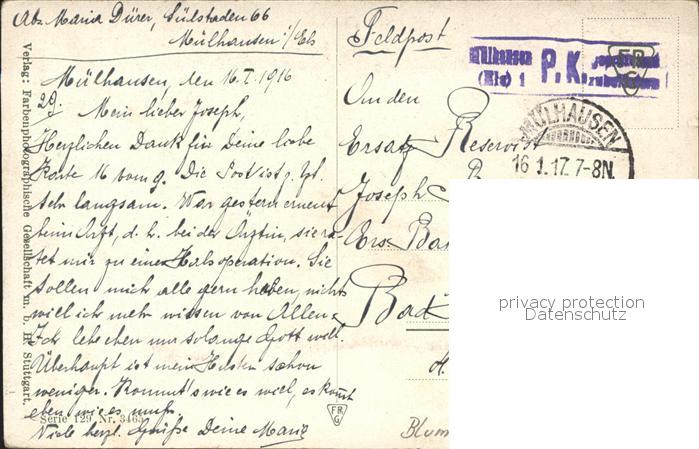 Abs. Maria Dürer, Sülstaden 66
Mülhausen i/Els
Mülhausen, den 16. I. 1916
29
Mein lieber Joseph,
Herzlichen Dank für Deine liebe
Karte 16 vom 9. Die Post ist z. Zt.
sehr langsam. War gestern erneut
beim Arzt, d. h. bei der Ärztin, sie ra-
tet mir zu einer Halsoperation. Sie
sollen mich alle gern haben, nichts
will ich mehr wissen von Allen.
Ich lebe eben nur solange Gott will.
Überhaupt ist mein Husten schon
weniger. Kommt's wie es will, es kommt
eben wie es muß.
Viele herzl. Grüße Deine Maria
Verlag: Farbenphotographische Gesellschaft m. b. H. Stuttgart.
Serie 129 Nr. 3463
FR
G
Feldpost
Mülhausen
(Els) 1 P.K.
FR
G
MÜLHAUSEN
16 1.17. 7-8N.
An den
Ersatz Reservist
Joseph
Ers. Bat
Bad
Blum
privacy protection
Datenschutz